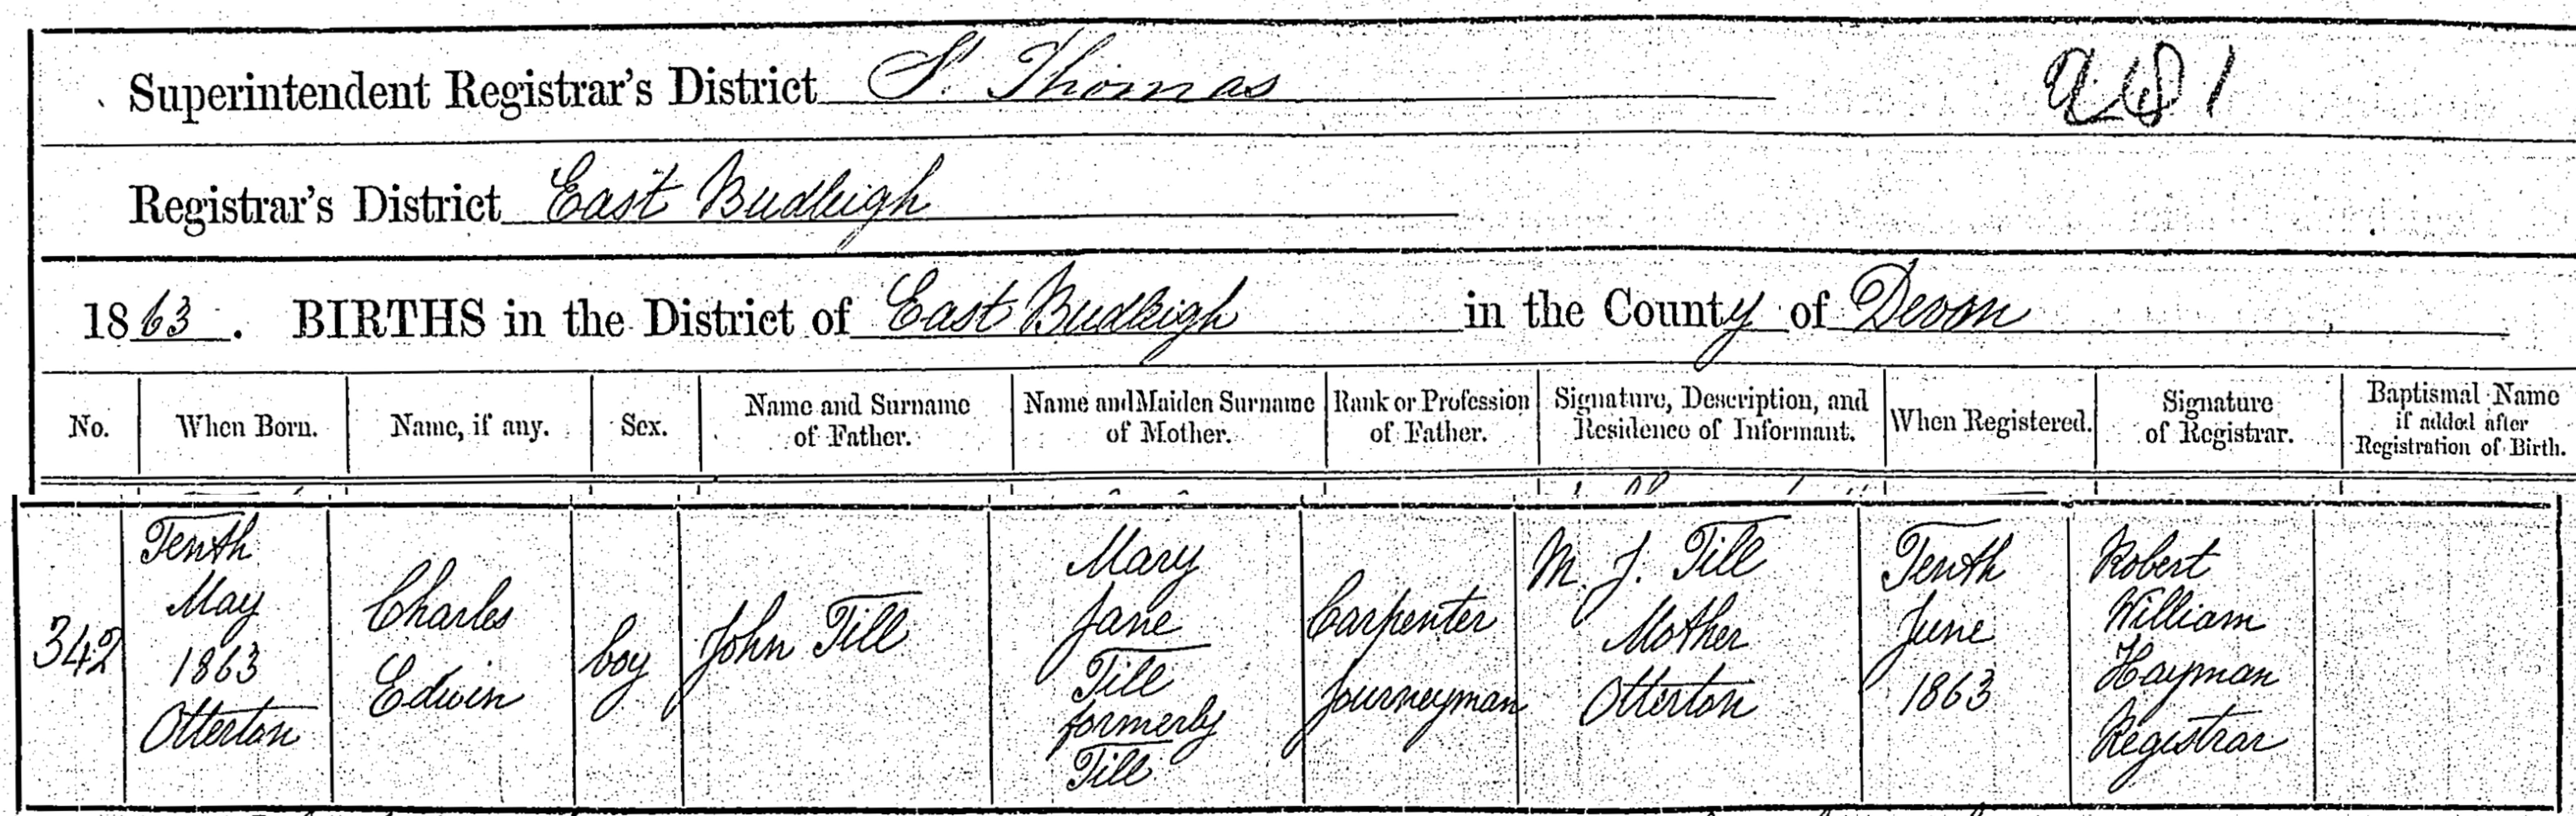 Superintendent Registrar's District St. Thomas
Registrar's District East Budleigh
1863. BIRTHS in the District of East Budleigh in the County of Devon
No.
When Born.
Name, if any.
Sex.
Name and Surname
of Father.
Name and Maiden Surname
of Mother.
Rank or Profession
of Father.
Signature, Description, and
Residence of Informant.
When Registered.
Signature
of Registrar.
Baptismal Name
if added after
Registration of Birth.
342
Tenth
May
1863
Otterton
Charles
Edwin
boy
John Till
Mary
Jane
Till
formerly
Till
Carpenter
Journeyman
M. J. Till
Mother
Otterton
Tenth
June
1863
Robert
William
Hayman
Registrar